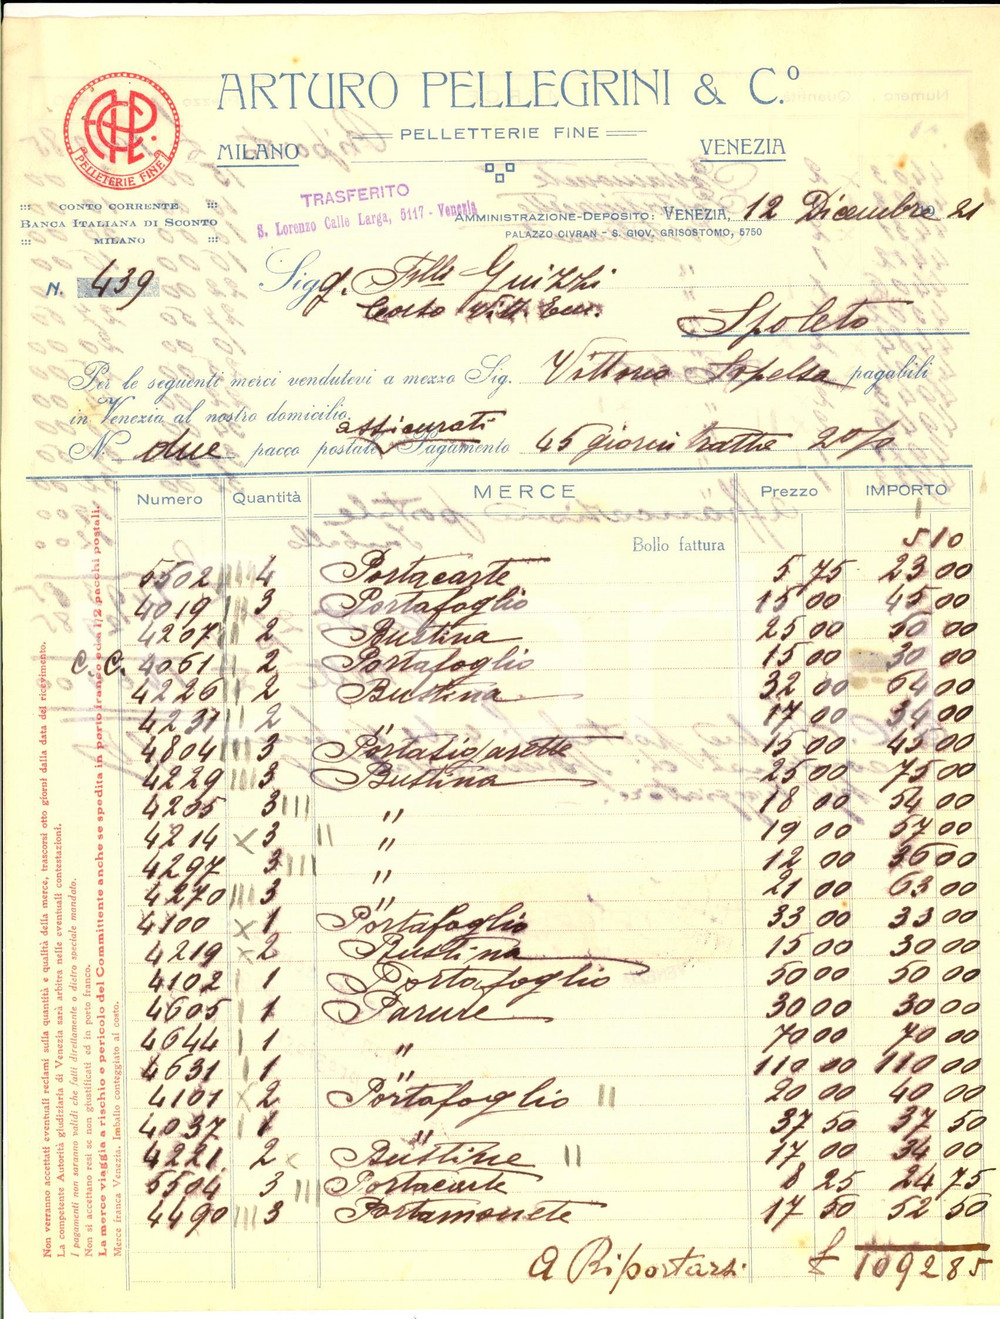 ARTURO PELLEGRINI & C.º
PELLETTERIE FINE
MILANO
VENEZIA
PELLETERIE FINE
CONTO CORRENTE
BANCA ITALIANA DI SCONTO
MILANO
TRASFERITO
S. Lorenzo Calle Larga, 5117 - Venezia
AMMINISTRAZIONE-DEPOSITO: VENEZIA, 12 Dicembre 21
PALAZZO CIVRAN - S. GIOV. GRISOSTOMO, 5750
N. 439
Sigg. Flli Guizzi
Corso Vitt. Em.
Spoleto
Per le seguenti merci vendutevi a mezzo Sig. Vittorio Sopelsa pagabili
in Venezia al nostro domicilio.
assicurati
N. due pacco postale Pagamento 45 giorni tratta 2%
Numero Quantità MERCE Prezzo IMPORTO
Bollo fattura 5 10
5502 4 Portacarte 5 75 23 00
4019 3 Portafoglio 15 00 45 00
4207 2 Bustina 25 00 50 00
C. C. 4061 2 Portafoglio 15 00 30 00
4226 2 Bustina 32 00 64 00
4231 2 " 17 00 34 00
4804 3 Portasigarette 15 00 45 00
4229 3 Bustina 25 00 75 00
4235 3 " 18 00 54 00
4214 x 3 " 19 00 57 00
4297 3 " 12 00 36 00
4270 3 " 21 00 63 00
4100 x 1 Portafoglio 33 00 33 00
4219 x 2 Bustina 15 00 30 00
4102 1 Portafoglio 50 00 50 00
4605 1 Parure 30 00 30 00
4644 1 " 70 00 70 00
4631 1 " 110 00 110 00
4101 x 2 Portafoglio 20 00 40 00
4037 1 " 37 50 37 50
4221 2 x Bustine 17 00 34 00
5504 3 Portacarte 8 25 24 75
4490 3 Portamonete 17 50 52 50
A Riportarsi £ 1092 85
Non verranno accettati eventuali reclami sulla quantità e qualità della merce, trascorsi otto giorni dalla data del ricevimento.
La competente Autorità giudiziaria di Venezia sarà arbitra nelle eventuali contestazioni.
I pagamenti non saranno validi che fatti direttamente o dietro speciale mandato.
Non si accettano resi se non giustificati ed in porto franco.
La merce viaggia a rischio e pericolo del Committente anche se spedita in porto franco ed a 1/2 pacchi postali.
Merce franca Venezia. Imballo conteggiato al costo.